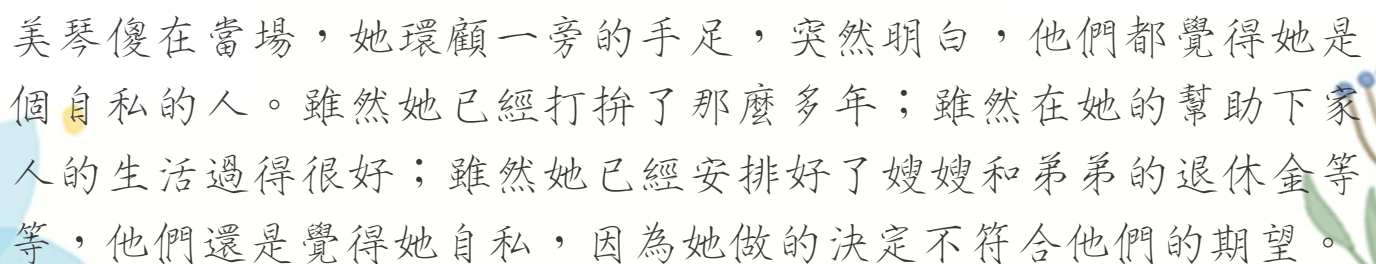 美琴傻在當場，她環顧一旁的手足，突然明白，他們都覺得她是
個自私的人。雖然她已經打拚了那麼多年；雖然在她的幫助下家
人的生活過得很好；雖然她已經安排好了嫂嫂和弟弟的退休金等
等，他們還是覺得她自私，因為她做的決定不符合他們的期望。